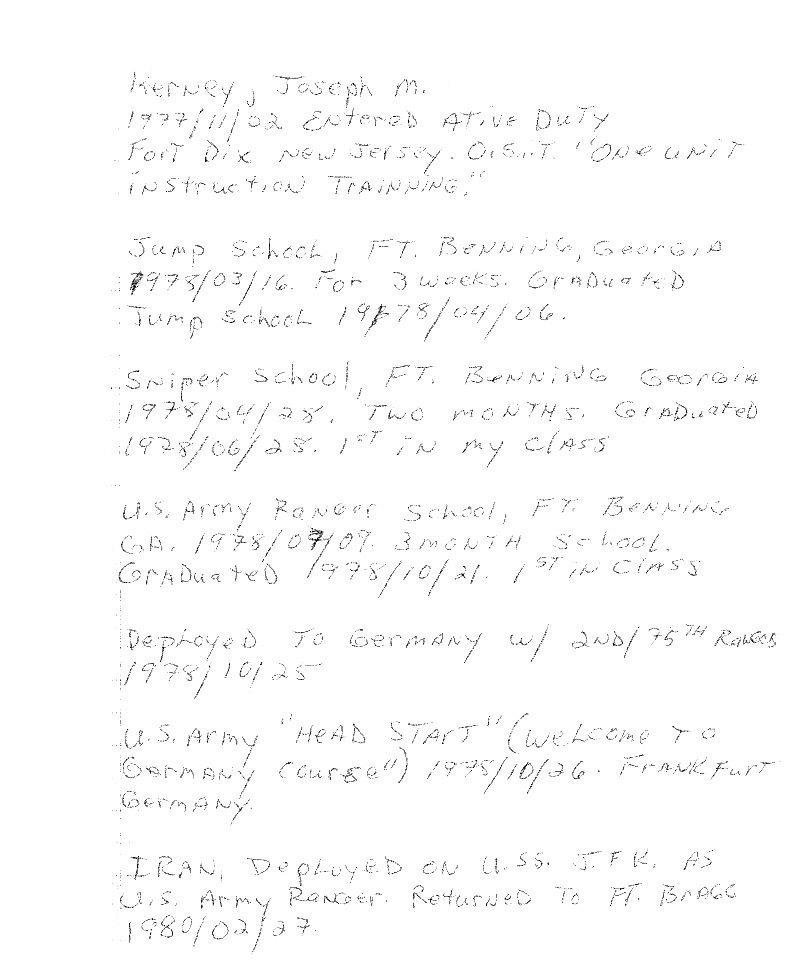 Kerney, Joseph M.
1977/11/02 Entered Ative Duty
Fort Dix New Jersey. O.S.I.T. "One unit
instruction Trainning."
Jump School, FT. Benning, Georgia
1978/03/16. For 3 weeks. Graduated
Jump School 1978/04/06.
Sniper School, FT. Benning Georgia
1978/04/28. Two months. Graduated
1978/06/28. 1ST in my Class
U.S. Army Ranger School, FT. Benning
GA. 1978/07/09. 3 month School.
Graduated 1978/10/21. 1ST in Class
Deployed To Germany w/ 2ND/75TH Rangers
1978/10/25
U.S. Army "Head Start" (Welcome To
Germany Course") 1978/10/26. Frankfurt
Germany.
IRAN, Deployed on U.SS. J.F.K. As
U.S. Army Ranger. Returned To Ft. Bragg
1980/02/27.